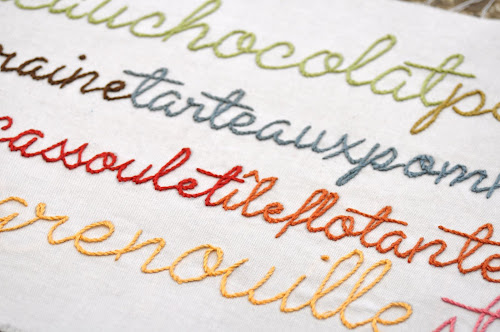 eauchocolatp
rainetarteauxpom
cassouletîleflotante
grenouille